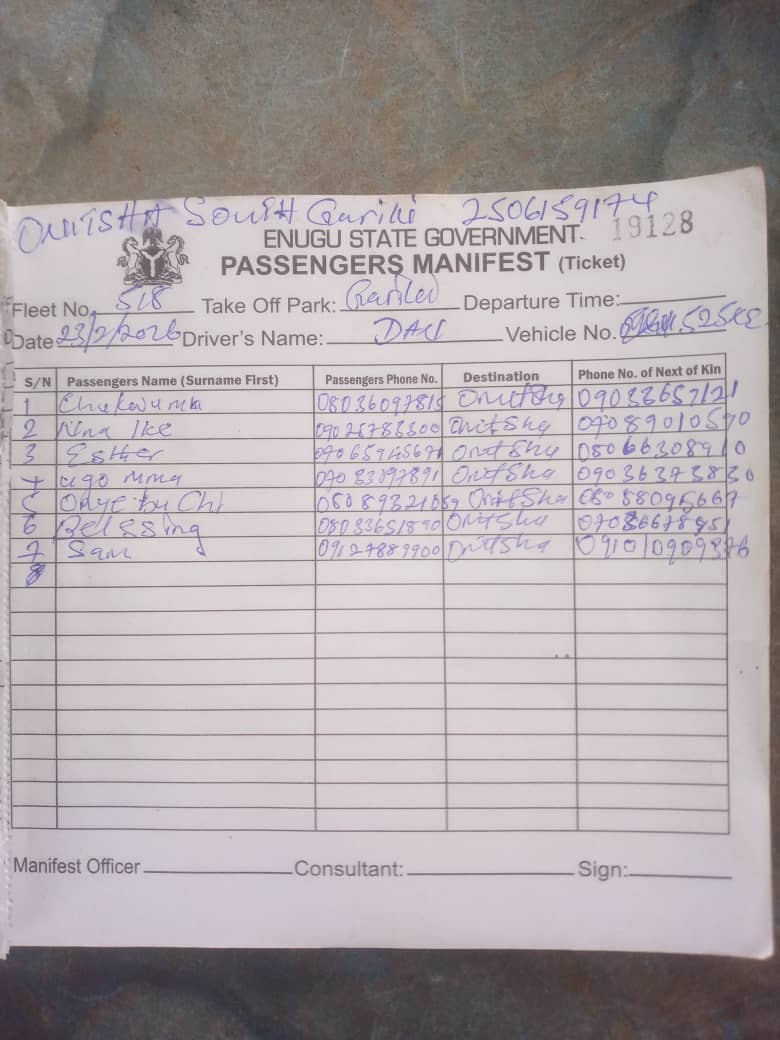 ONITSHA SOUTH Gariki 2506159174
ENUGU STATE GOVERNMENT 19128
PASSENGERS MANIFEST (Ticket)
Fleet No. 518 Take Off Park: Gariki Departure Time:
Date 23/2/2026 Driver's Name: Vehicle No.
S/N Passengers Name (Surname First) Passengers Phone No. Destination Phone No. of Next of Kin
1 Chukwuma 08036097815 Onitsha 09033657121
2 Nna Ike 09026783300 Onitsha 07089010590
3 Esther 07065945671 Onitsha 08066308910
4 ugo mma 07083097891 Onitsha 09036373830
5 Onye bu Chi 08089321059 Onitsha 08088095667
6 Belessing 08033651890 Onitsha 07036678951
7 Sam 09127889900 Onitsha 091010909876
8
Manifest Officer Consultant: Sign: